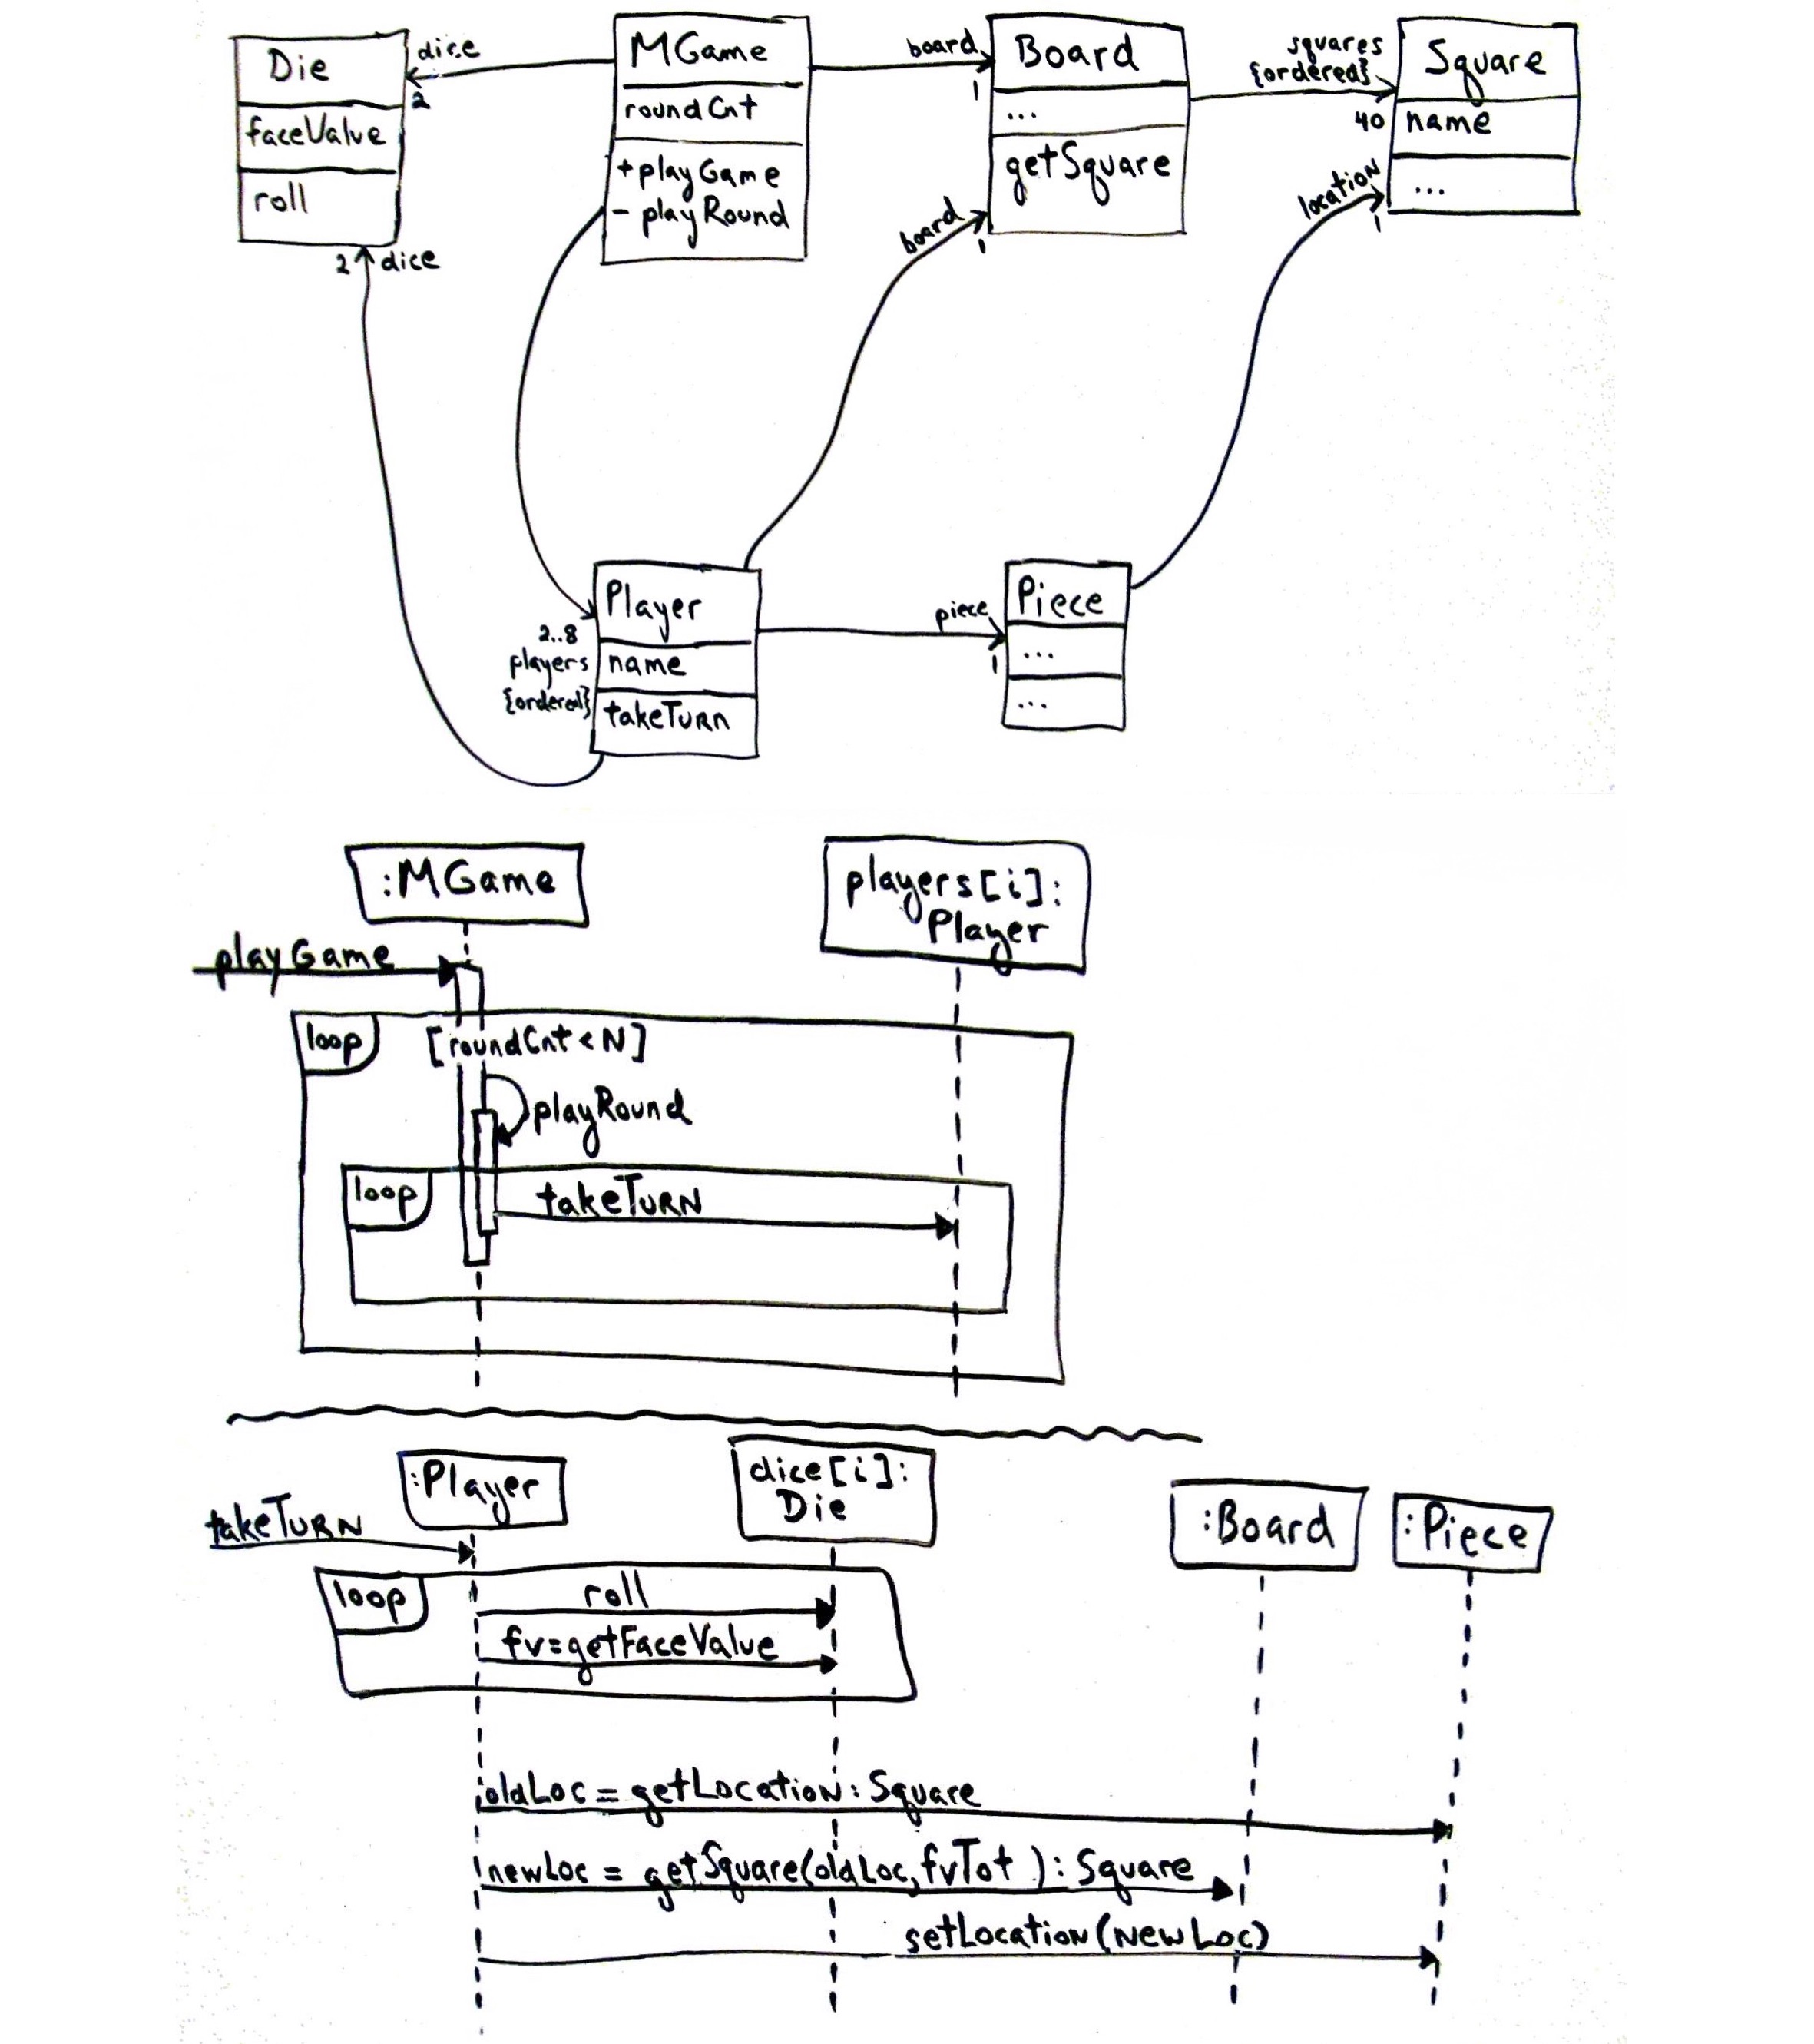 Die
faceValue
roll
dice
2
2
dice
MGame
roundCnt
+playGame
- playRound
board
1
Board
...
getSquare
board
1
squares
{ordered}
40
Square
name
...
location
1
2..8
players
{ordered}
Player
name
takeTurn
piece
1
Piece
...
...
:MGame
players[i]:
Player
playGame
loop
[roundCnt < N]
playRound
loop
takeTurn
:Player
dice[i]:
Die
:Board
:Piece
takeTurn
loop
roll
fv=getFaceValue
oldLoc = getLocation: Square
newLoc = getSquare(oldLoc, fvTot ): Square
setLocation(newLoc)